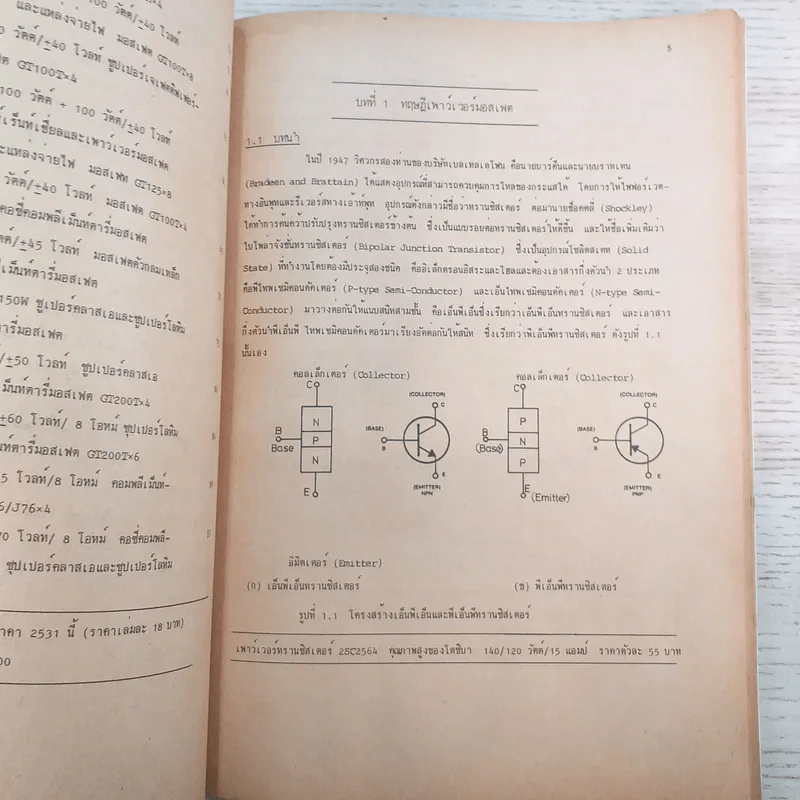 100 วัตต์/±40 โวลท์
และแหล่งจ่ายไฟ มอสเฟต GT100T×8
วัตต์/±40 โวลท์ ซูปเปอร์เจเฟตดิฟเฟอร์-
เฟต GT100T×4
100 วัตต์ + 100 วัตต์/±40 โวลท์
เร็นท์เชี่ยลและเพาว์เวอร์มอสเฟต
แหล่งจ่ายไฟ มอสเฟท GT125×8
วัตต์/±40 โวลท์ มอสเฟต GT100T×4
คอชี่คอมพลีเม็นท์ตารี่มอสเฟต
ตต์/±45 โวลท์ มอสเฟตตัวกลมเหล็ก
เม็นท์ตารี่มอสเฟต
150W ซูเปอร์คลาสเอและซูปเปอร์โลทิม
ตารี่มอสเฟต
/±50 โวลท์ ซูปเปอร์คลาสเอ
เม็นท์ตารี่มอสเฟต GT200T×4
±60 โวลท์/ 8 โอหม์ ซุปเปอร์โลทิม
นท์ตารี่มอสเฟต GT200T×6
5 โวลท์/8 โอหม์ คอมพลีเม็นท์-
6/J76×4
70 โวลท์/ 8 โอหม์ คอชี่คอมพลี-
ซุปเปอร์คลาสเอและซูปเปอร์โลทิม
ราคา 2531 นี้ (ราคาเล่มละ 18 บาท)
00
5
บทที่ 1 ทฤษฎีเพาว์เวอร์มอสเฟต
1.1 บทนำ
ในปี 1947 วิศวกรสองท่านของบริษัทเบลเทลเลโฟน คือนายบาร์ดีนและนายบราทเทน
(Bradeen and Brattain) ได้แสดงอุปกรณ์ที่สามารถควบคุมการไหลของกระแสได้ โดยการให้ไฟฟอร์เวด-
ทางอินพุทและรีเวอร์สทางเอ้าท์พุท อุปกรณ์ดังกล่าวมีชื่อว่าทรานซิสเตอร์ ต่อมานายช็อคคลี่ (Shockley)
ได้ทำการค้นคว้าปรับปรุงทรานซิสเตอร์ข้างต้น ซึ่งเป็นแบบรอยต่อทรานซิสเตอร์ให้ดีขึ้น และให้ชื่อเพิ่มเติมว่า
ไบโพล่าจังชั่นทรานซิสเตอร์ (Bipolar Junction Transistor) ซึ่งเป็นอุปกรณ์โซลิดสเตท (Solid
State) ที่ทำงานโดยต้องมีประจุสองชนิด คืออิเล็กตรอนอิสระและโฮลและต้องเอาสารกึ่งตัวนำ 2 ประเภท
คือพีไทพเซมิคอนดัคเตอร์ (P-type Semi-Conductor) และเอ็นไทพเซมิคอนดัคเตอร์ (N-type Semi-
Conductor) มาวางต่อกันให้แนบสนิทสามชั้น คือเอ็นพีเอ็นซึ่งเรียกว่าเอ็นพีเอ็นทรานซิสเตอร์ และเอาสาร
กึ่งตัวนำพีเอ็นพี ไทพเซมิคอนดัคเตอร์มาเรียงอัดต่อกันให้สนิท ซึ่งเรียกว่าพีเอ็นพีทรานซิสเตอร์ ดังรูปที่ 1.1
นั่นเอง
คอลเล็กเตอร์ (Collector)
คอลเล็กเตอร์ (Collector)
C
(COLLECTOR)
C
C
(COLLECTOR)
C
N
P
N
B
Base
E
(BASE)
B
E
(EMITTER)
NPN
P
N
P
B
(Base)
E
(Emitter)
(BASE)
B
E
(EMITTER)
PNP
อิมิตเตอร์ (Emitter)
(ก) เอ็นพีเอ็นทรานซิสเตอร์
(ข) พีเอ็นพีทรานซิสเตอร์
รูปที่ 1.1 โครงสร้างเอ็นพีเอ็นและพีเอ็นพีทรานซิสเตอร์
เพาว์เวอร์ทรานซิสเตอร์ 2SC2564 คุณภาพสูงของโตชิบา 140/120 วัตต์/15 แอมป์ ราคาตัวละ 55 บาท